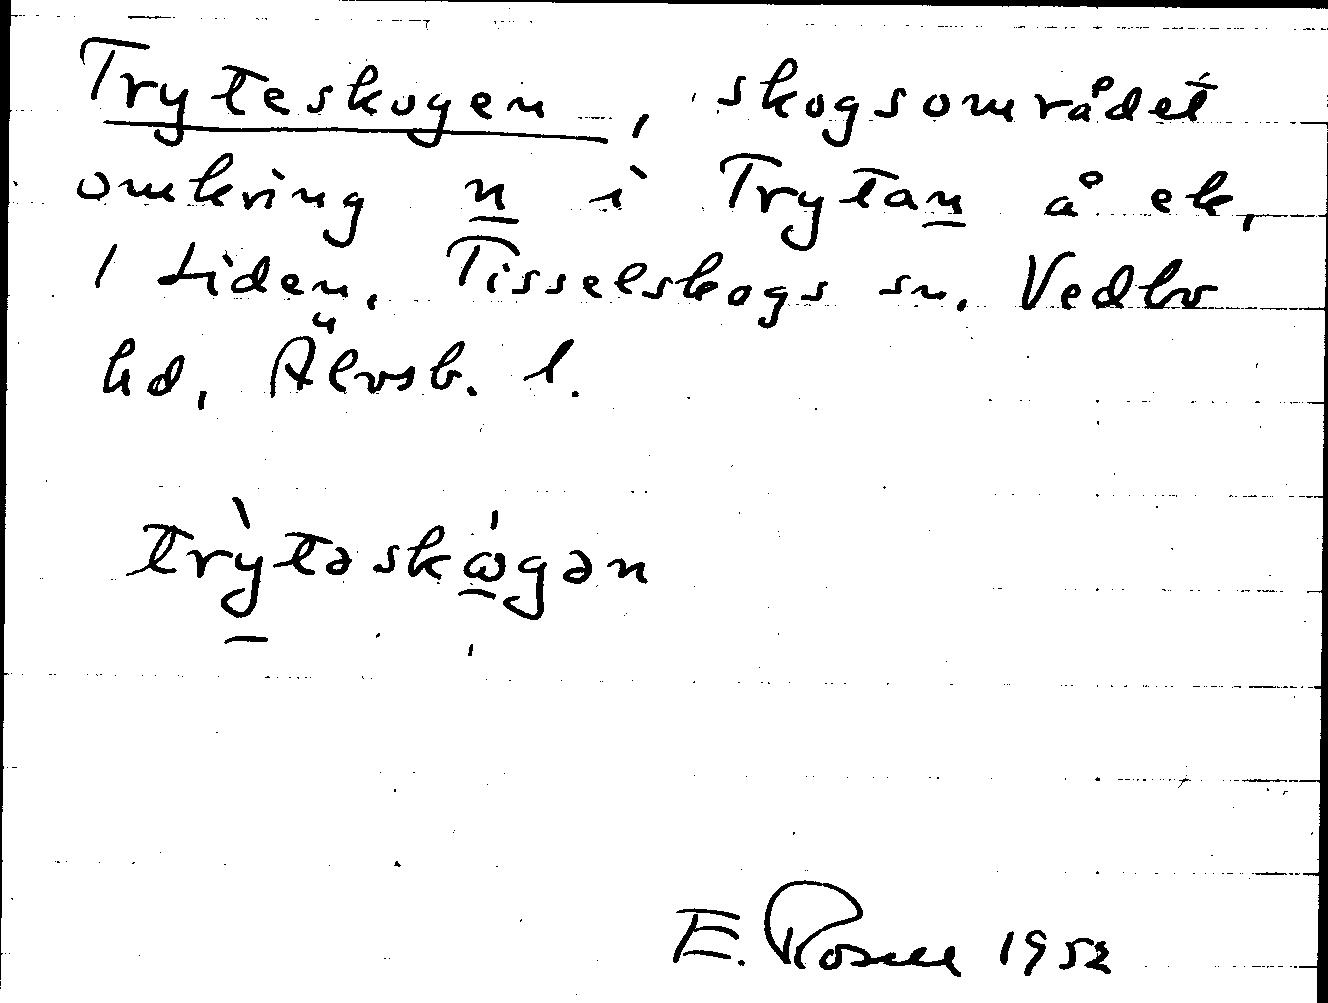 Tryteskogen, skogsområdet
omkring n i Trytan å ek.
1 tiden, Tisselskogs sn. Vedbo
hd, Älvsb. l.
trỳtəskω̇gən
E. Rosell 1952